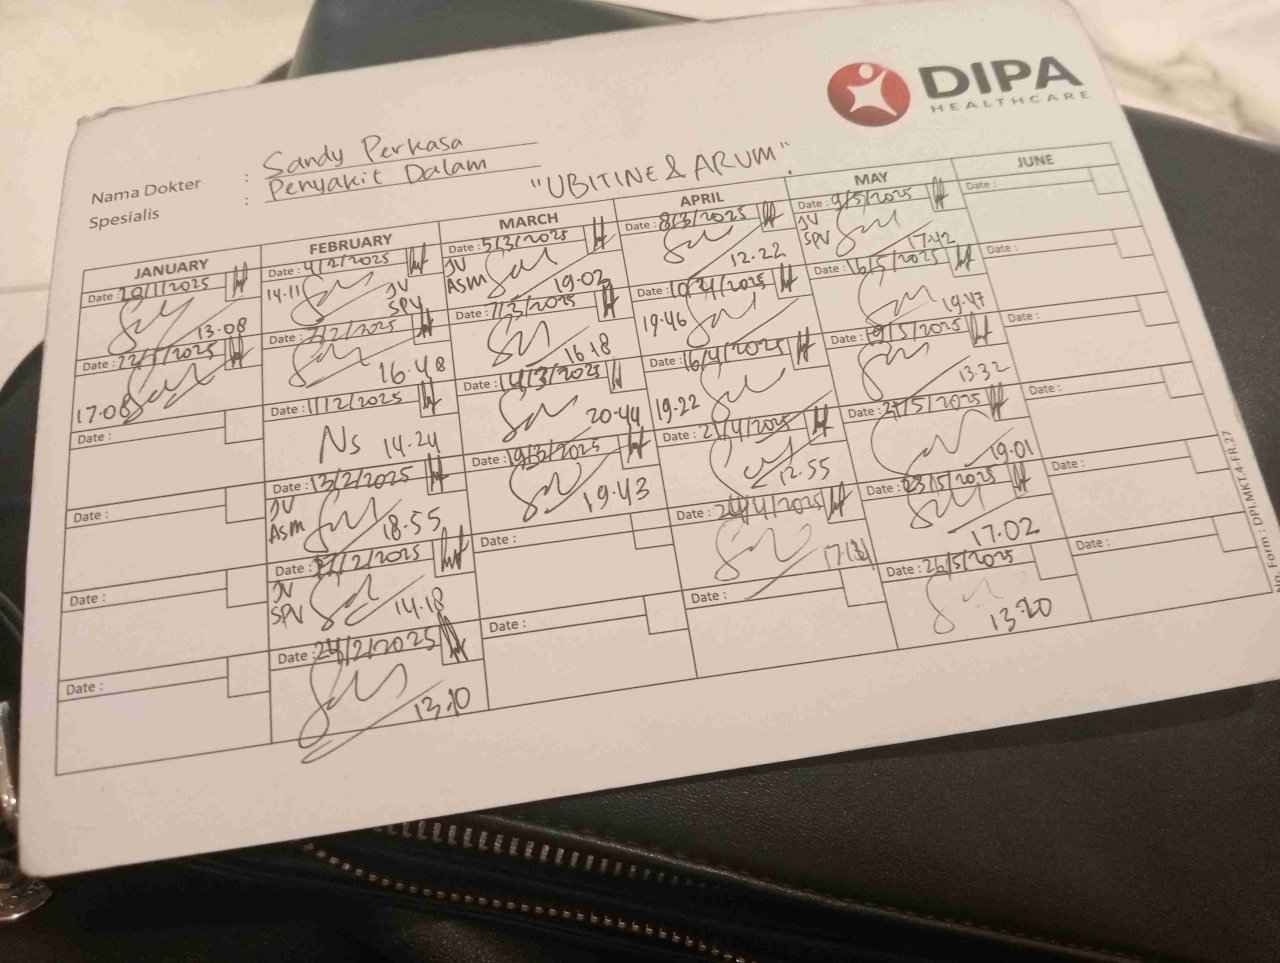 DIPA
HEALTHCARE
Nama Dokter : Sandy Perkasa
Spesialis : Penyakit Dalam
"UBITINE & ARUM"
JANUARY
Date : 20/1/2025
13.08
Date : 22/1/2025
17.08
Date :
Date :
Date :
Date :
FEBRUARY
Date : 4/2/2025
14.11
JV
SPV
Date : 7/2/2025
16.48
Date : 11/2/2025
Ns 14.24
Date : 13/2/2025
JV
ASM
18.55
Date : /2/2025
JV
SPV
14.18
Date : 24/2/2025
13.10
MARCH
Date : 5/3/2025
JV
ASM
19.02
Date : 7/3/2025
16.18
Date : 14/3/2025
20.44
Date : 19/3/2025
19.43
Date :
Date :
APRIL
Date : 8/3/2025
12.22
Date : 10/4/2025
19.46
Date : 16/4/2025
19.22
Date : 21/4/2025
12.55
Date : 24/4/2025
Date :
MAY
Date : 9/5/2025
JV
SPV
17.42
Date : 16/5/2025
19.47
Date : 19/5/2025
13.32
Date : 21/5/2025
19.01
Date : 23/5/2025
17.02
Date : 26/5/2025
13.20
JUNE
Date :
Date :
Date :
Date :
Date :
Date :
No. Form : DPI.MKT.4.FR.27